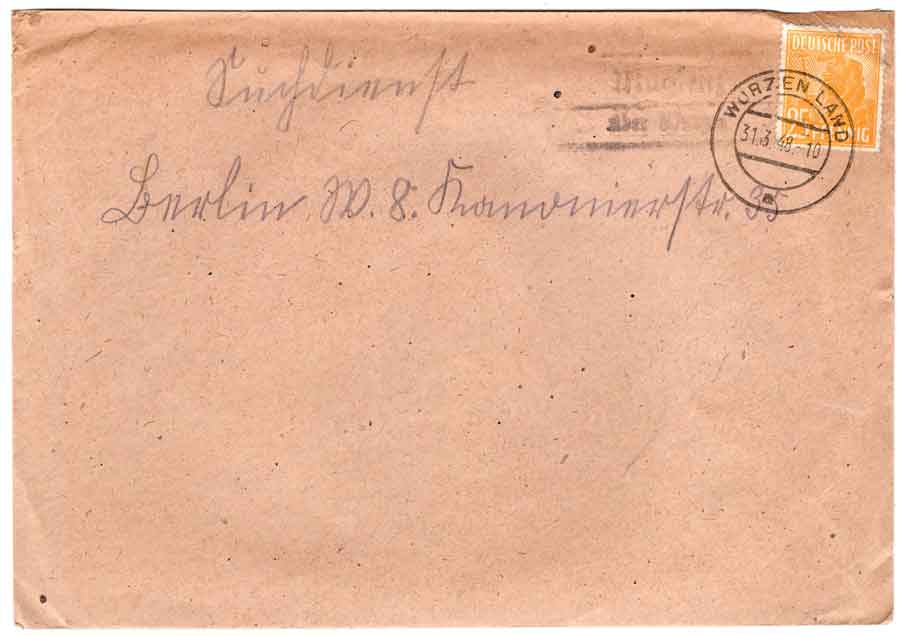 DEUTSCHE POST
25 PFENNIG
WURZEN LAND
31.3.48.-10
Suchdienst
Berlin W. 8. Kanonierstr. 35